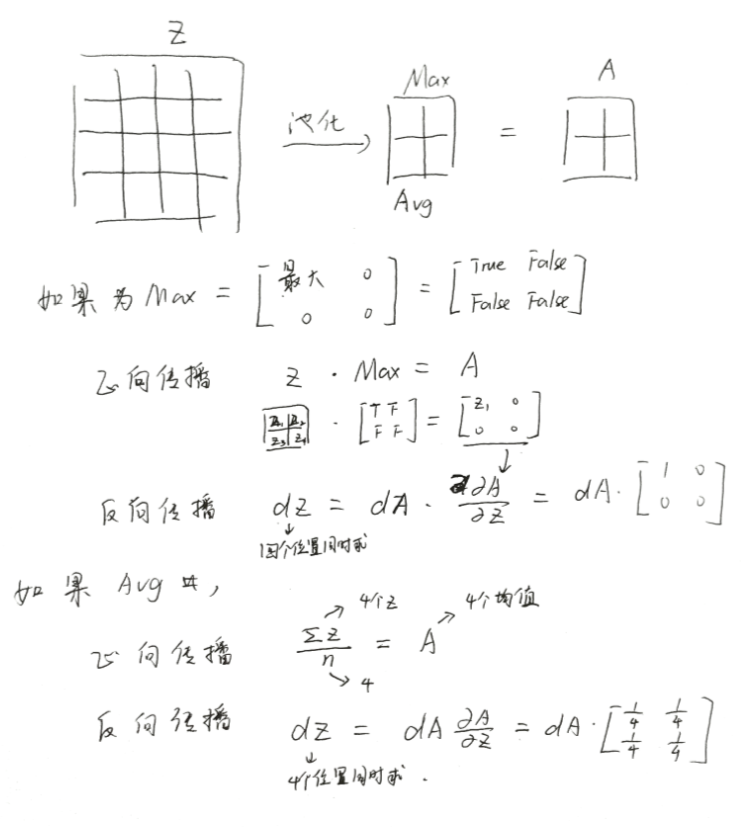 Z
Max
A
池化
=
Avg
如果为Max = [最大 0 0 0] = [True False False False]
正向传播 Z · Max = A
[Z₁ Z₂ Z₃ Z₄] · [T F F F] = [Z₁ 0 0 0]
反向传播 dZ = dA · ∂A/∂Z = dA · [1 0 0 0]
个位置同时求
如果 Avg 共,
4个Z 4个均值
正向传播 ΣZ/n = A
4
反向传播 dZ = dA ∂A/∂Z = dA · [1/4 1/4 1/4 1/4]
4个位置同时求.